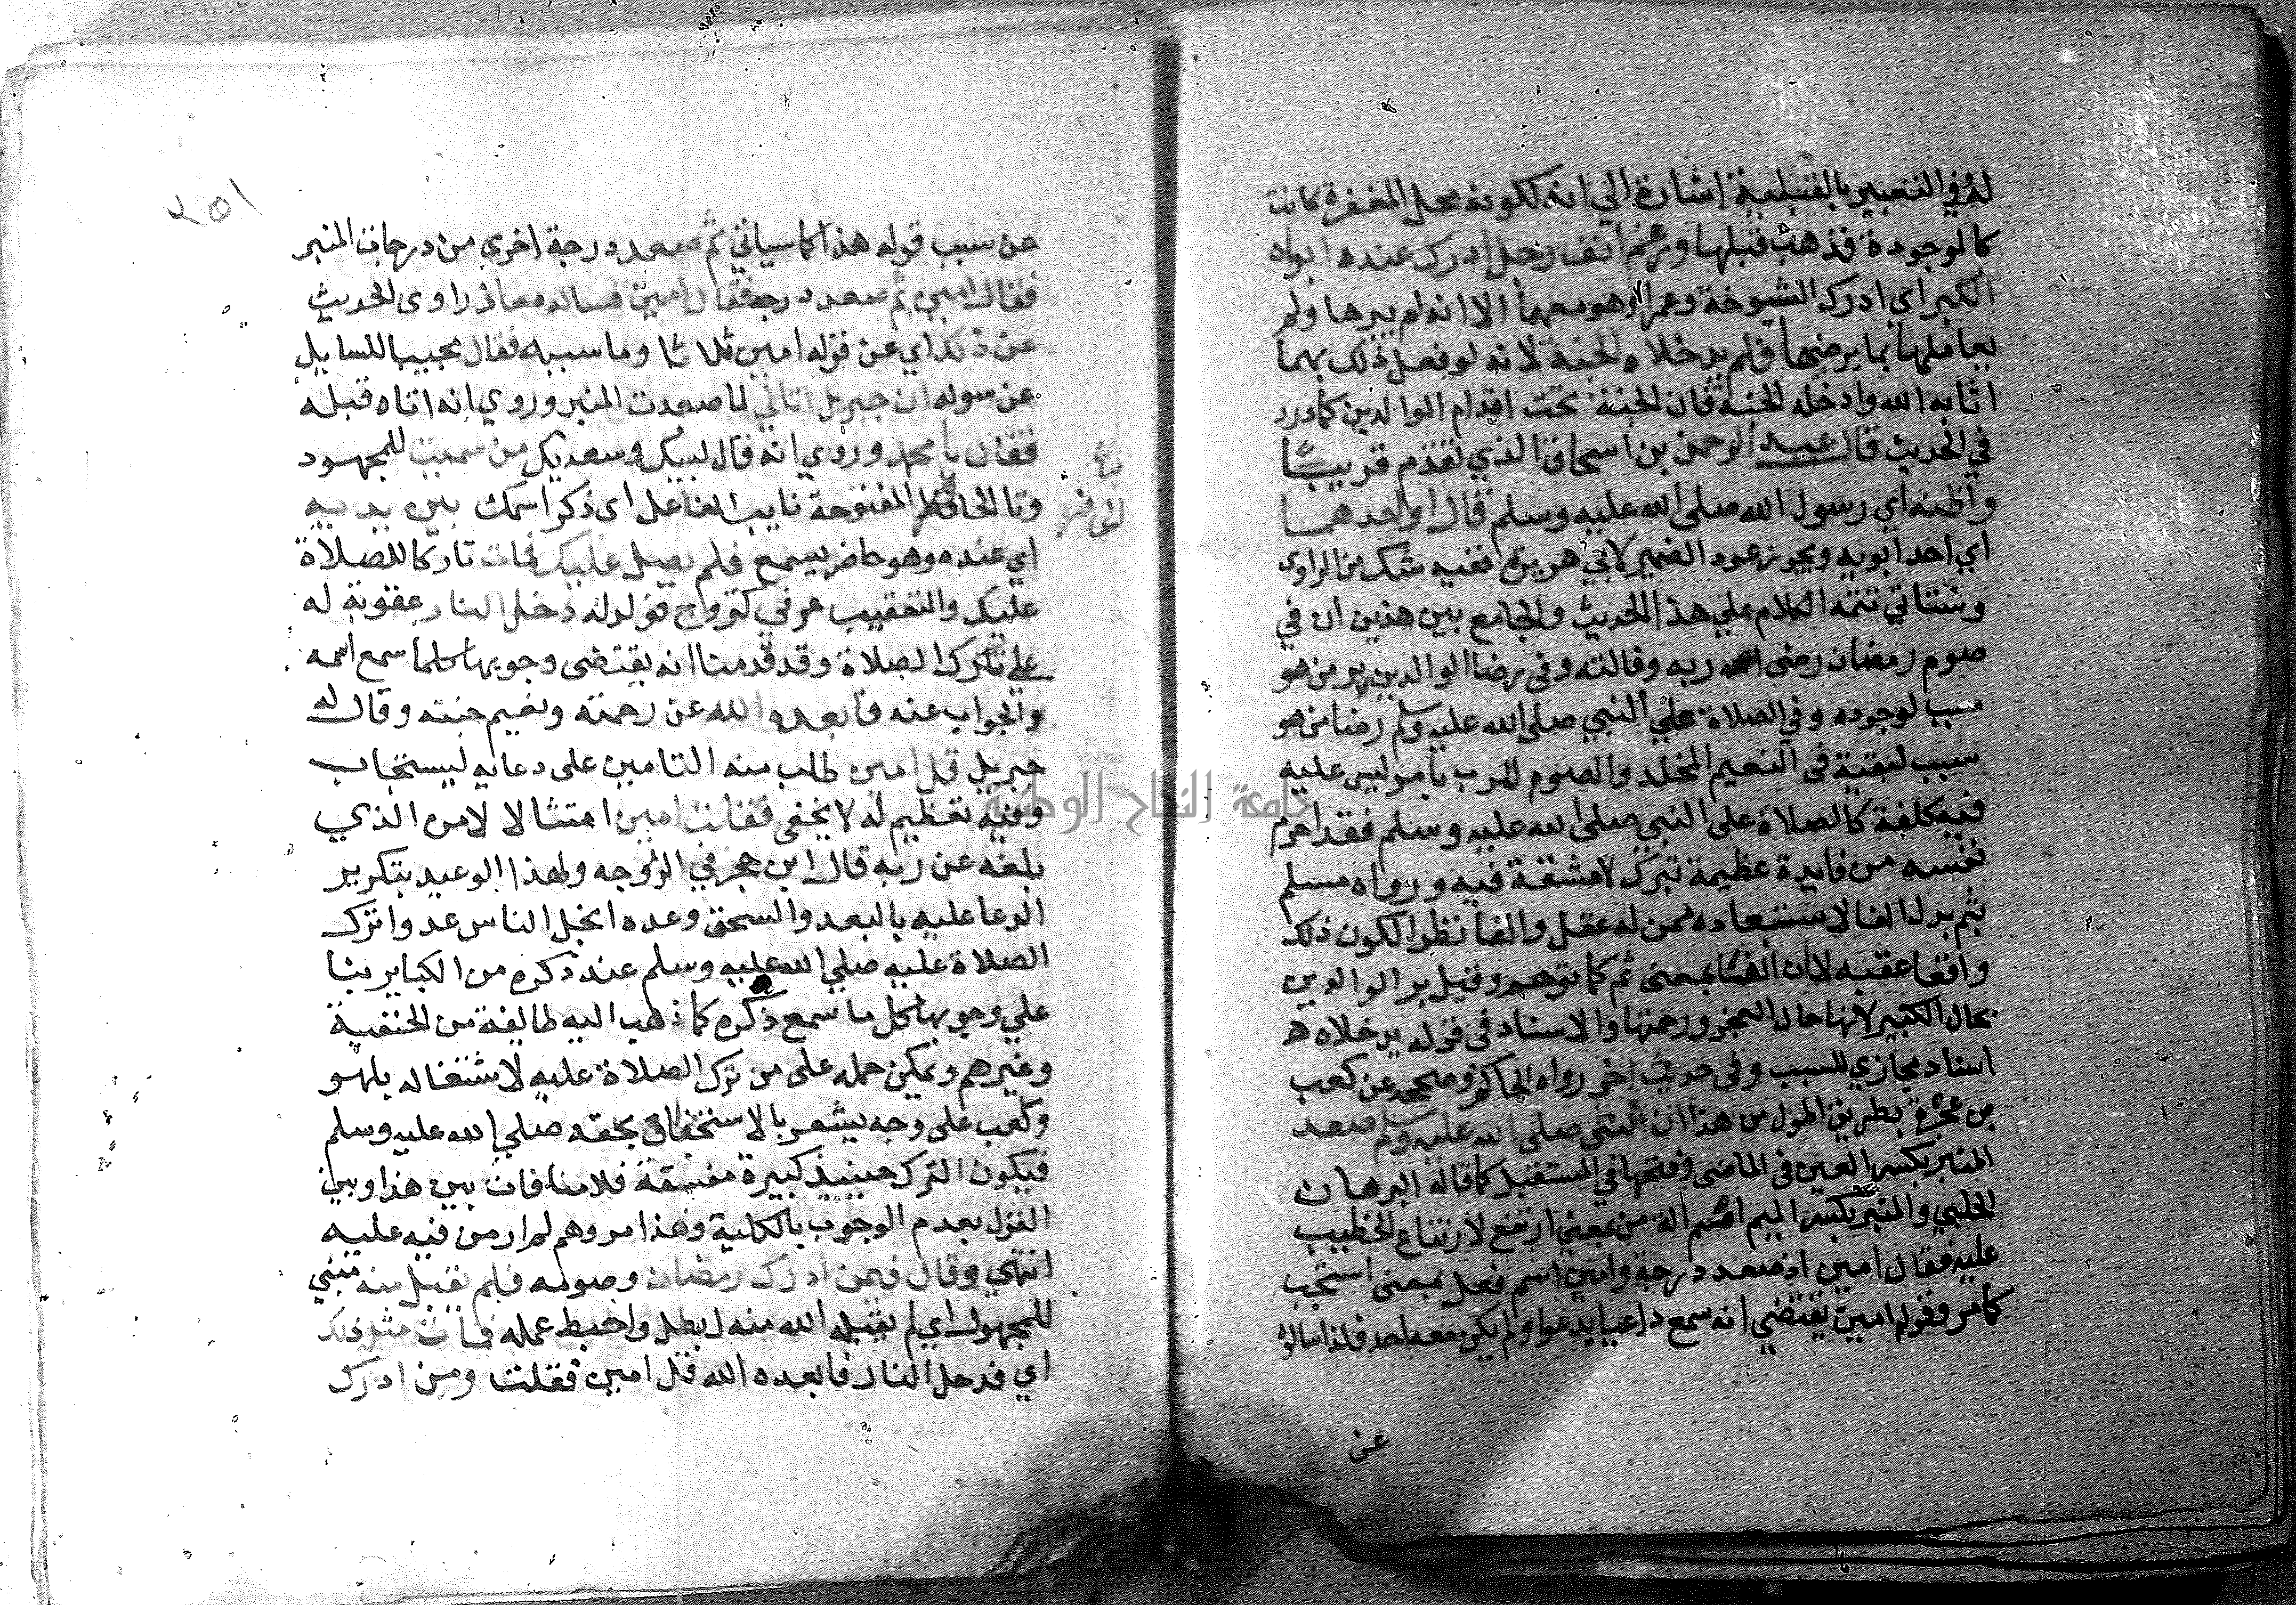 له وفي التعبير بالقبلية اشارة الي انه لكونه محل المغفرة كانت
كالموجودة فذهبت قبلها ورغم انف رجل ادرك عنده ابواه
الكبر اي ادرك الشيوخة وعمرا وهو معهما الا انه لم يبرها ولم
يعاملهما بما يرضيهما فلم يدخلاه الجنة لانه لو فعل ذلك بهما
اثابه الله وادخله الجنة فان الجنة تحت اقدام الوالدين كما ورد
في الحديث قال عبد الرحمن بن اسحاق الذي تقدم قريبا
واظنه اي رسول الله صلى الله عليه وسلم قال او احدهما
اي احد ابويه ويجوز عود الضمير لابي هريرة ففيه شك من الراوى
وستاتي تتمه الكلام علي هذا الحديث والجامع بين هذين ان في
صوم رمضان رضى ربه وفي رضا الوالدين بر من هو
سبب لوجوده وفي الصلاة علي النبي صلى الله عليه وسلم رضا من هو
سبب لبقيه في النعيم المخلد والصوم للرب بامر ليس عليه
فيه كلفة كالصلاة على النبي صلى الله عليه وسلم فقد احرم
نفسه من فايدة عظيمة تبرك لا مشقة فيه ورواه مسلم
بثم بدل الفا لاستبعاده ممن له عقل والفا نظرا لكون ذلك
واقعا عقبه لا ان الفا بمعنى ثم كما توهم وقيل بر الوالدين
بحال الكبير لانها حال العجز ورحمتها والاسناد في قوله يدخلاه هـ
اسناد مجازي للسبب وفي حديث اخر رواه الحاكم وصححه عن كعب
بن عجرة بطريق اطول من هذا ان النبي صلى الله عليه وسلم صعد
المنبر بكسر العين في الماضى وفتحها في المستقبل كما قاله البرهان
الحلبي والمنبر بكسر الميم اسم الة من بمعني ارتفع لارتفاع الخطيب
عليه فقال امين اذ صعد درجة وامين اسم فعل بمعنى استجب
كما مر وقوله امين يقتضي انه سمع داعيا يدعوا ولم يكن معه احد فلذا سالوه
عن
٢٥١
عن سبب قوله هذا كما سياتي ثم صعد درجة اخرى من درجات المنبر
فقال امين ثم صعد درجة فقال امين فساله معاذ راوى الحديث
عن ذلك اي عن قوله امين ثلاثا وما سببه فقال مجيبا للسايل
عن سوله ان جبريل اتاني لما صعدت المنبر وروي انه اتاه قبله
فقال يا محمد وروي انه قال لبيك وسعديك من سميت للمجهود
وتا الخطاب المفتوحة نايب الفاعل اى ذكر اسمك بين يديه
اي عنده وهو حاضر يسمع فلم يصل عليك فمات تاركا للصلاة
عليك والتعقيب عرفي كتزوج فولد له دخل النار عقوبة له
علي تركه الصلاة وقد قدمنا انه يقتضى وجوبها كلما سمع اسمه
والجواب عنه فابعده الله عن رحمته ونعيم جنته وقال له
جبريل قل امين طلب منه التامين على دعايه ليستجاب
وفيه تعظيم له لا يخفى فقلت امين امتثالا لامره الذي
بلغه عن ربه قال ابن حجر في الزوجه ولهذا الوعيد بتكرير
الدعا عليه بالبعد والسحق وعده ابخل الناس عدوا ترك
الصلاة عليه صلي الله عليه وسلم عند ذكره من الكباير بنا
علي وجوبها كل ما سمع ذكره كما ذهب اليه طايفة من الحنفية
وغيرهم ويمكن حمله على من ترك الصلاة عليه لاشتغاله بلهو
ولعب على وجه يشعر بالاستخفاف بحقه صلي الله عليه وسلم
فيكون الترك حينيذ كبيرة مفسقة فلا منافات بين هذا وبين
القول بعدم الوجوب بالكلية وهذا مروهم لم ار من نبه عليه
انتهي وقال فيمن ادرك رمضان وصومه فلم يقبل منه مبني
للمجهول اي لم يقبله الله منه ابطل واحبط عمله فمات مثل ذلك
اي فدخل النار فابعده الله قل امين فقلت ومن ادرك
جامعة النجاح الوطنية